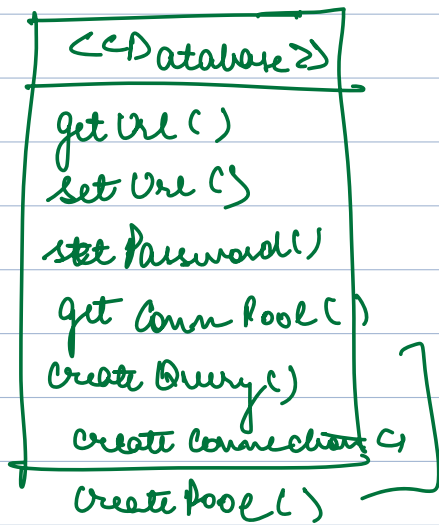 <<Database>>
getUrl()
setUrl()
setPassword()
getConnPool()
createQuery()
createConnection()
createPool()